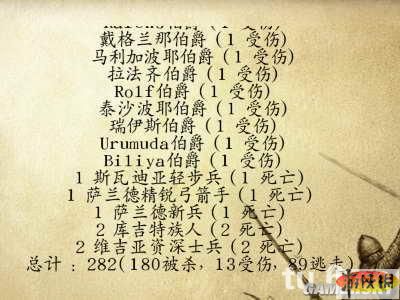 戴格兰那伯爵 (1 受伤)
马利加波耶伯爵 (1 受伤)
拉法齐伯爵 (1 受伤)
Rolf伯爵 (1 受伤)
泰沙波耶伯爵 (1 受伤)
瑞伊斯伯爵 (1 受伤)
Urumuda伯爵 (1 受伤)
Biliya伯爵 (1 受伤)
1 斯瓦迪亚轻步兵 (1 死亡)
1 萨兰德精锐弓箭手 (1 死亡)
1 萨兰德新兵 (1 死亡)
2 库吉特族人 (2 死亡)
2 维吉亚资深士兵 (2 死亡)
总计 : 282(180被杀,13受伤,89逃走)
游侠网